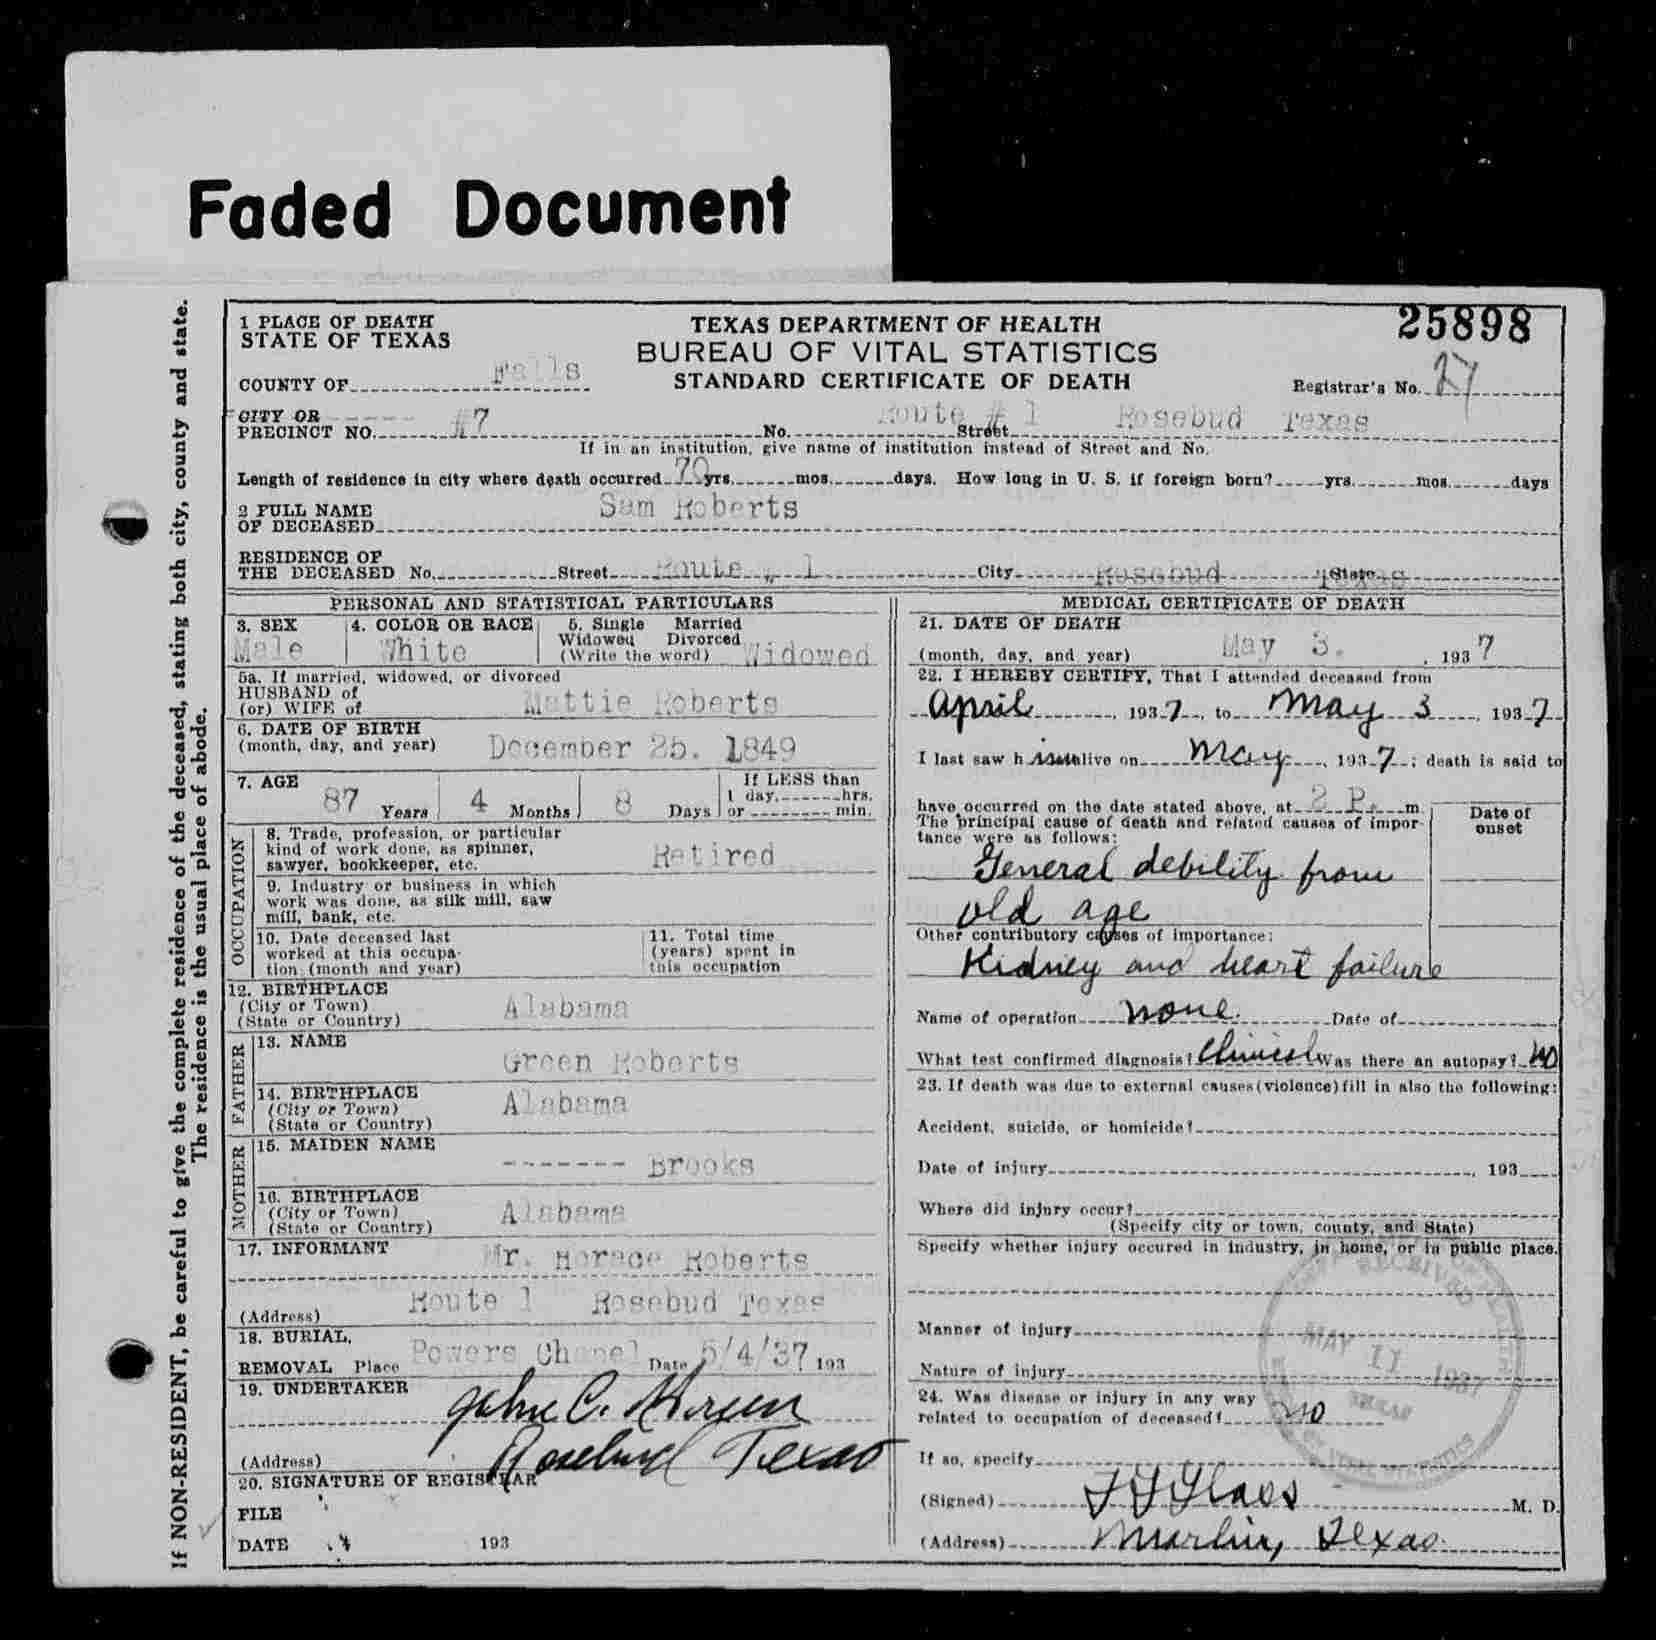 Faded Document
If NON-RESIDENT, be careful to give the complete residence of the deceased, stating both city, county and state.
The residence is the usual place of abode.
25898
1 PLACE OF DEATH
STATE OF TEXAS
COUNTY OF Falls
TEXAS DEPARTMENT OF HEALTH
BUREAU OF VITAL STATISTICS
STANDARD CERTIFICATE OF DEATH
Registrar's No. 27
CITY OR
PRECINCT NO. #7 No. Street Route # 1 Rosebud Texas
If in an institution, give name of institution instead of Street and No.
Length of residence in city where death occurred 70 yrs. mos. days. How long in U. S. if foreign born? yrs. mos. days
2 FULL NAME
OF DECEASED Sam Roberts
RESIDENCE OF
THE DECEASED No. Street Route # 1 City Rosebud State Texas
PERSONAL AND STATISTICAL PARTICULARS
3. SEX Male
4. COLOR OR RACE White
5. Single Married
Widowed Divorced
(Write the word) Widowed
5a. If married, widowed, or divorced
HUSBAND of
(or) WIFE of Mattie Roberts
6. DATE OF BIRTH
(month, day, and year) December 25. 1849
7. AGE
87 Years 4 Months 8 Days
If LESS than
1 day, hrs.
or min.
OCCUPATION
8. Trade, profession, or particular
kind of work done, as spinner,
sawyer, bookkeeper, etc. Retired
9. Industry or business in which
work was done, as silk mill, saw
mill, bank, etc.
10. Date deceased last
worked at this occupa-
tion (month and year)
11. Total time
(years) spent in
this occupation
12. BIRTHPLACE
(City or Town)
(State or Country) Alabama
FATHER
13. NAME
Green Roberts
14. BIRTHPLACE
(City or Town)
(State or Country) Alabama
MOTHER
15. MAIDEN NAME
------- Brooks
16. BIRTHPLACE
(City or Town)
(State or Country) Alabama
17. INFORMANT Mr. Horace Roberts
(Address) Route 1 Rosebud Texas
18. BURIAL,
REMOVAL Place Powers Chapel Date 5/4/37 193
19. UNDERTAKER
John C.
(Address) Rosebud Texas
20. SIGNATURE OF REGISTRAR
FILE
DATE 193
MEDICAL CERTIFICATE OF DEATH
21. DATE OF DEATH
(month, day, and year) May 3. , 1937
22. I HEREBY CERTIFY, That I attended deceased from
April , 1937, to May 3 , 1937
I last saw him alive on May , 1937; death is said to
have occurred on the date stated above, at 2 P. m.
The principal cause of death and related causes of impor-
tance were as follows:
Date of
onset
General debility from
old age
Other contributory causes of importance:
Kidney and heart failure
Name of operation none. Date of
What test confirmed diagnosis? Clinical Was there an autopsy? no
23. If death was due to external causes (violence) fill in also the following:
Accident, suicide, or homicide?
Date of injury , 193
Where did injury occur?
(Specify city or town, county, and State)
Specify whether injury occured in industry, in home, or in public place.
Manner of injury
Nature of injury
RECEIVED
MAY 11 1937
TEXAS
24. Was disease or injury in any way
related to occupation of deceased? no
If so, specify
(Signed) Glass M. D.
(Address) Marlin, Texas